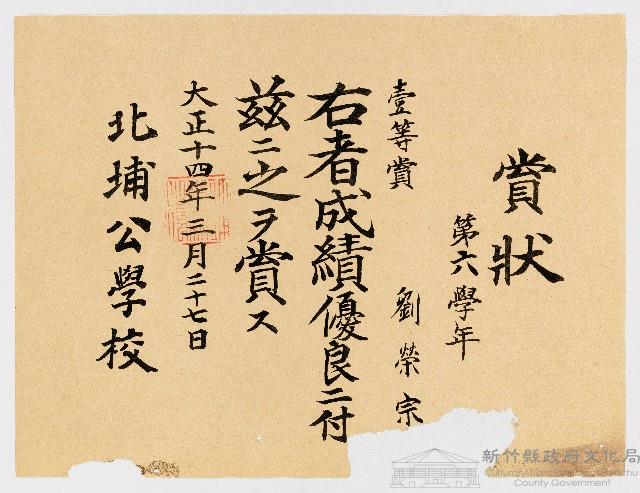 賞狀
第六學年
壹等賞 劉榮宗
右者成績優良ニ付
茲ニ之ヲ賞ス
大正十四年三月二十七日
北埔公學校
新竹縣政府文化局
County Government